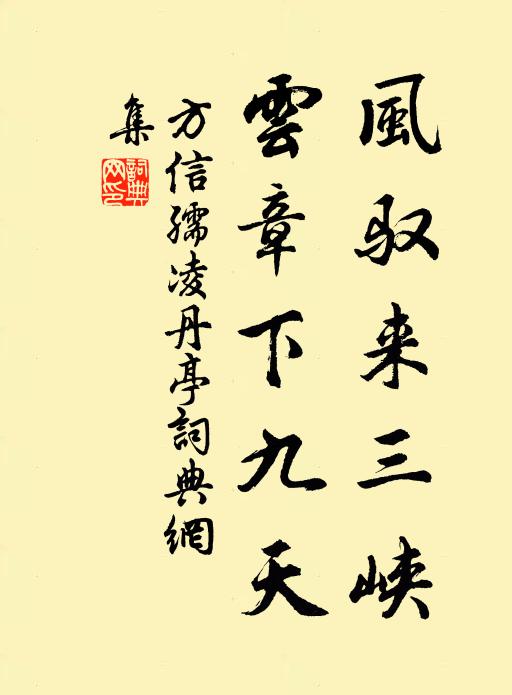 風馭来三峽
雲章下九天
方信孺凌丹亭詞典網
集
詞典网印